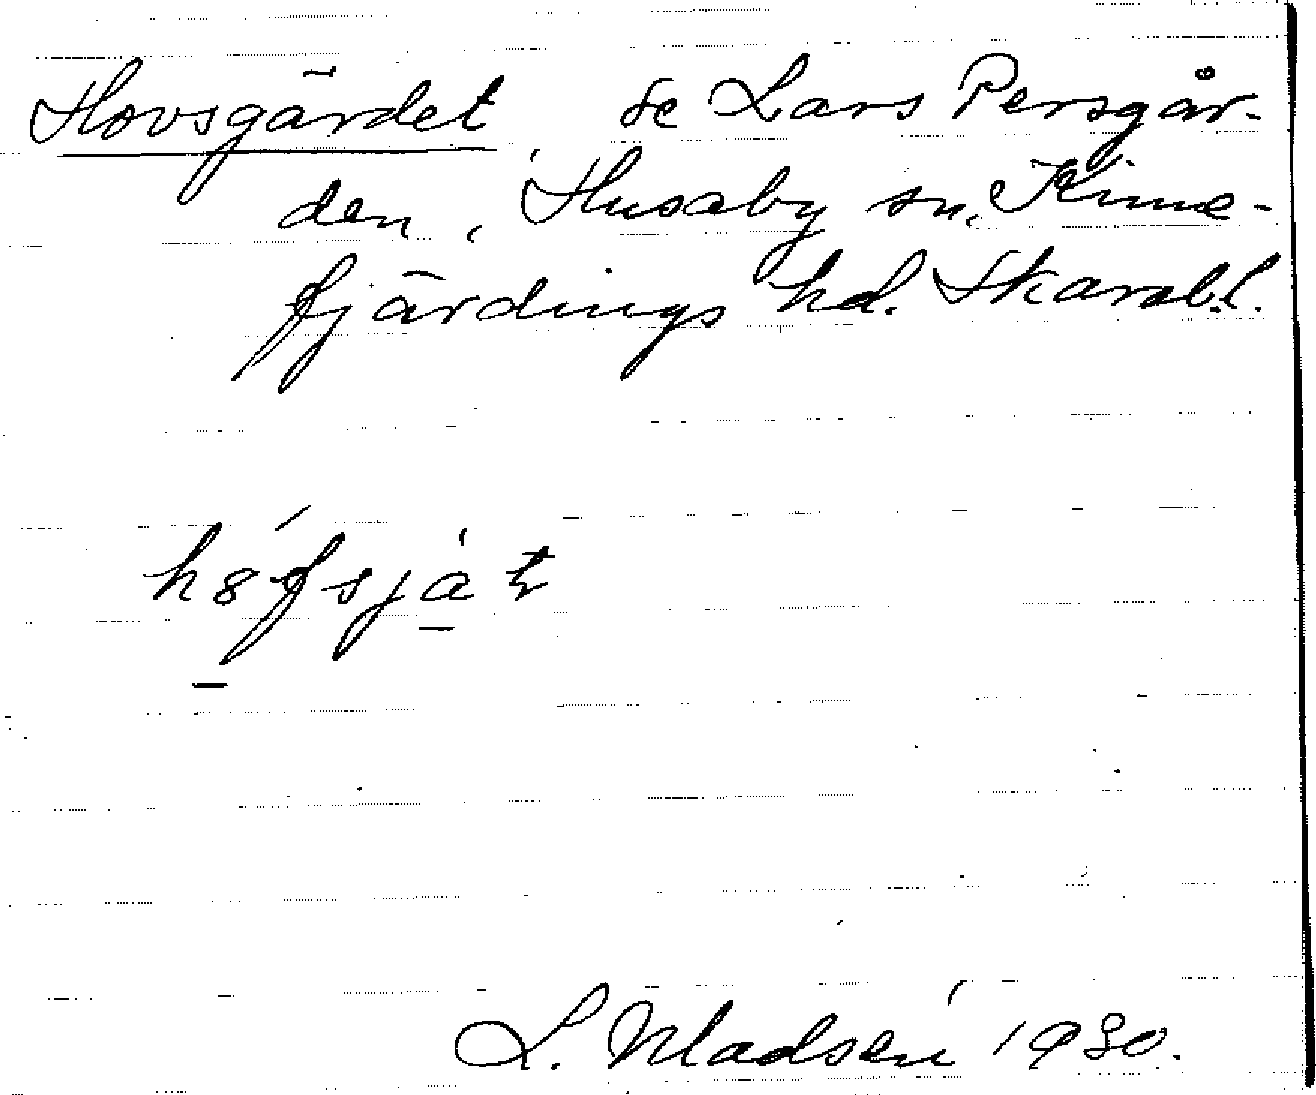 Hovsgärdet se Lars Persgår-
den, Husaby sn, Kinne-
fjärdings hd. Skarabl.
L. Madsén 1930.